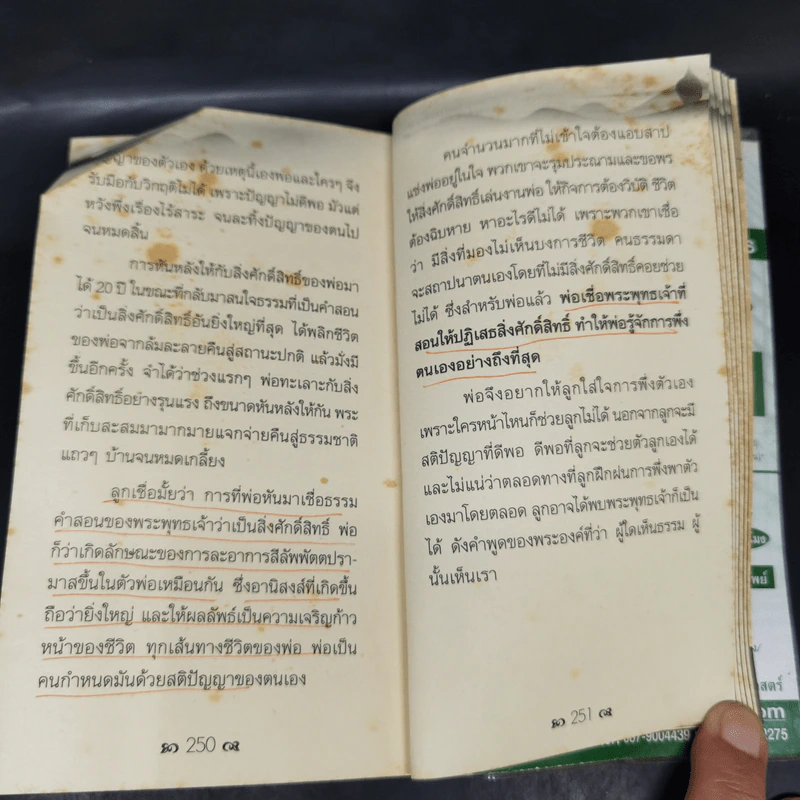 ปัญญาของตัวเอง ด้วยเหตุนี้เองพ่อและใครๆ จึง
รับมือกับวิกฤติไม่ได้ เพราะปัญญาไม่ดีพอ มัวแต่
หวังพึ่งเรื่องไร้สาระ จนละทิ้งปัญญาของตนไป
จนหมดสิ้น
การหันหลังให้กับสิ่งศักดิ์สิทธิ์ของพ่อมา
ได้ 20 ปี ในขณะที่กลับมาสนใจธรรมที่เป็นคำสอน
ว่าเป็นสิ่งศักดิ์สิทธิ์อันยิ่งใหญ่ที่สุด ได้พลิกชีวิต
ของพ่อจากล้มละลายคืนสู่สถานะปกติ แล้วมั่งมี
ขึ้นอีกครั้ง จำได้ว่าช่วงแรกๆ พ่อทะเลาะกับสิ่ง
ศักดิ์สิทธิ์อย่างรุนแรง ถึงขนาดหันหลังให้กัน พระ
ที่เก็บสะสมมามากมายแจกจ่ายคืนสู่ธรรมชาติ
แถวๆ บ้านจนหมดเกลี้ยง
ลูกเชื่อมั้ยว่า การที่พ่อหันมาเชื่อธรรม
คำสอนของพระพุทธเจ้าว่าเป็นสิ่งศักดิ์สิทธิ์ พ่อ
ก็ว่าเกิดลักษณะของการละอาการสีลัพพัตตปรา-
มาสขึ้นในตัวพ่อเหมือนกัน ซึ่งอานิสงส์ที่เกิดขึ้น
ถือว่ายิ่งใหญ่ และให้ผลลัพธ์เป็นความเจริญก้าว
หน้าของชีวิต ทุกเส้นทางชีวิตของพ่อ พ่อเป็น
คนกำหนดมันด้วยสติปัญญาของตนเอง
250
คนจำนวนมากที่ไม่เข้าใจต้องแอบสาป
แช่งพ่ออยู่ในใจ พวกเขาจะรุมประณามและขอพร
ให้สิ่งศักดิ์สิทธิ์เล่นงานพ่อ ให้กิจการต้องวิบัติ ชีวิต
ต้องฉิบหาย หาอะไรดีไม่ได้ เพราะพวกเขาเชื่อ
ว่า มีสิ่งที่มองไม่เห็นบงการชีวิต คนธรรมดา
จะสถาปนาตนเองโดยที่ไม่มีสิ่งศักดิ์สิทธิ์คอยช่วย
ไม่ได้ ซึ่งสำหรับพ่อแล้ว พ่อเชื่อพระพุทธเจ้าที่
สอนให้ปฏิเสธสิ่งศักดิ์สิทธิ์ ทำให้พ่อรู้จักการพึ่ง
ตนเองอย่างถึงที่สุด
พ่อจึงอยากให้ลูกใส่ใจการพึ่งตัวเอง
เพราะใครหน้าไหนก็ช่วยลูกไม่ได้ นอกจากลูกจะมี
สติปัญญาที่ดีพอ ดีพอที่ลูกจะช่วยตัวลูกเองได้
และไม่แน่ว่าตลอดทางที่ลูกฝึกฝนการพึ่งพาตัว
เองมาโดยตลอด ลูกอาจได้พบพระพุทธเจ้าก็เป็น
ได้ ดังคำพูดของพระองค์ที่ว่า ผู้ใดเห็นธรรม ผู้
นั้นเห็นเรา
251
สตร์
om
9004439
2275